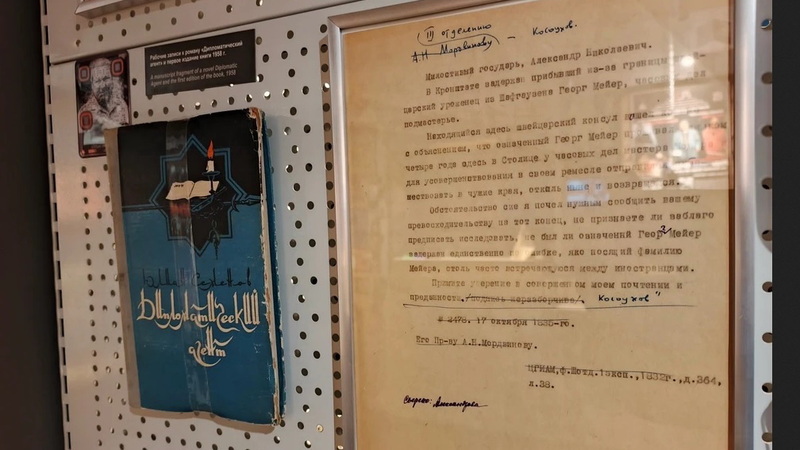 Рабочие записи к роману «Дипломатический
агент» и первое издание книги 1958 г.
A manuscript fragment of a novel Diplomatic
Agent and the first edition of the book, 1958
Дипломатический
агент
III отделению
А.Н. Мордвинову – Косоухов.
Милостивый государь, Александр Николаевич.
В Кронштадте задержан прибывший из-за границы
царский уроженец из Шафгаузена Георг Мейер,
подмастерье.
Находящийся здесь швейцарский консул
с объяснением, что означенный Георг Мейер
четыре года здесь в Столице у часовых дел мастера
для усовершенствования в своем ремесле
шествовать в чужие края, откуда ныне и возвращается.
Обстоятельство сие я почел нужным сообщить вашему
превосходительству на тот конец, не признаете ли за благо
предписать исследовать, не был ли означенный Георг Мейер
задержан единственно по ошибке, яко носящий фамилию
Мейера, столь часто встречающуюся между иностранцами.
Примите уверение в совершенном моем почтении и
преданности /подпись неразборчива/ Косоухов"
# 2478. 17 октября 1835-го.
Его Пр-ву А.Н.Мордвинову.
ЦГИАМ, ф. III отд. 1 эксп., 1832г., д.364,
л.38.
Сверено: